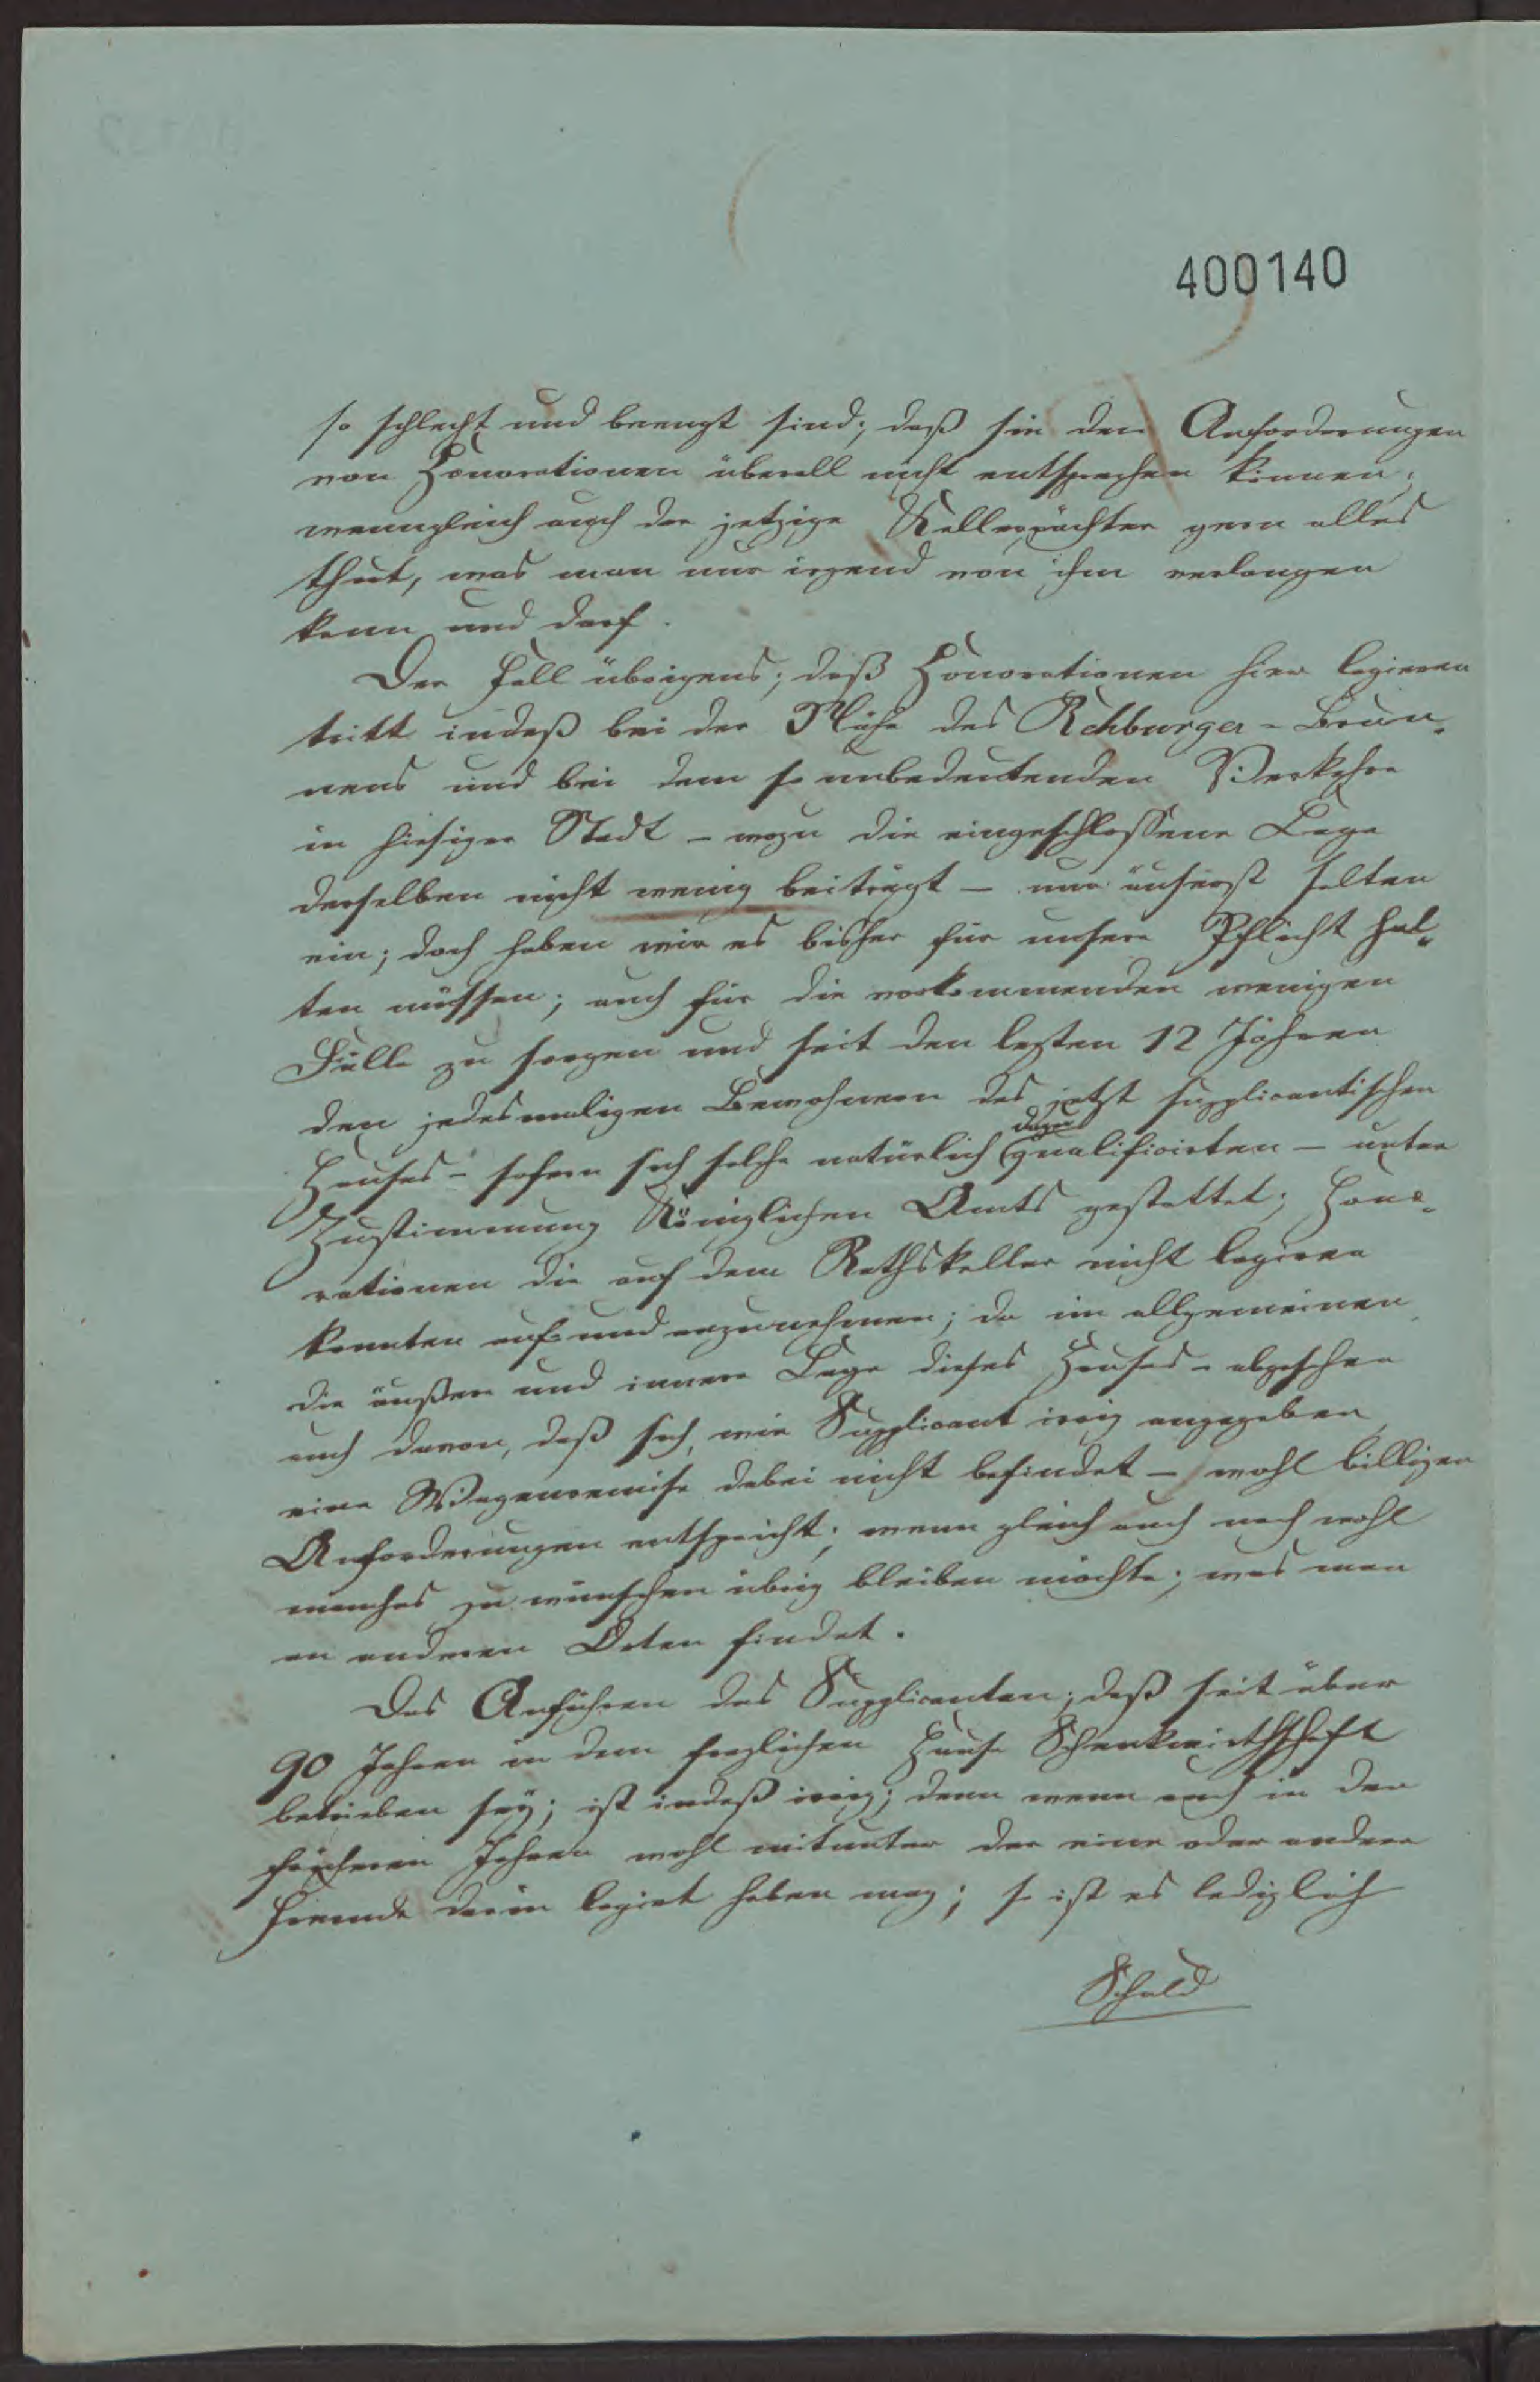 400140
so schlecht und beengt sind; daß sie den Anforderungen
von Honorationen überall nicht entsprechen können;
wenngleich auch der jetzige Kellerpächter gern alles
thut, was man nur irgend von ihm verlangen
kann und darf.
Der Fall übrigens; daß Honorationen hier logieren
tritt indeß bei der Nähe des Rehburger-Brun-
nens und bei dem so unbedeutenden Verkehre
in hiesiger Stadt - wozu die eingeschlossene Lage
derselben nicht wenig beiträgt - nur äußerst selten
ein; doch haben wir es bisher für unsere Pflicht hal-
ten müssen; auch für die vorkommenden wenigen
Fälle zu sorgen und seit den lezten 12 Jahren
den jedesmaligen Bewohnern des jetzt supplicantischen
Hauses - sofern sich solche natürlich dazu qualificirten - unter
Zustimmung Königlichen Amts gestattet; Hono-
rationen die auf dem Rathskeller nicht logiren
konnten auf- und anzunehmen; da im allgemeinen
die äußere und innere Lage dieses Hauses - abgesehen
auch davon, daß sich, wie Supplicant irrig angegeben
eine Wagenremise dabei nicht befindet - wohl billigen
Anforderungen entspricht; wenn gleich auch noch wohl
manches zu wünschen übrig bleiben möchte; was man
an anderen Orten findet.
Das Anführen des Supplicanten; daß seit über
90 Jahren in dem fraglichen Hause Schenkwirthschaft
betrieben sey; ist indeß irrig; denn wenn auch in den
früheren Jahren wohl mitunter der eine oder andere
Fremde darin logirt haben mag; so ist es lediglich
Schuld